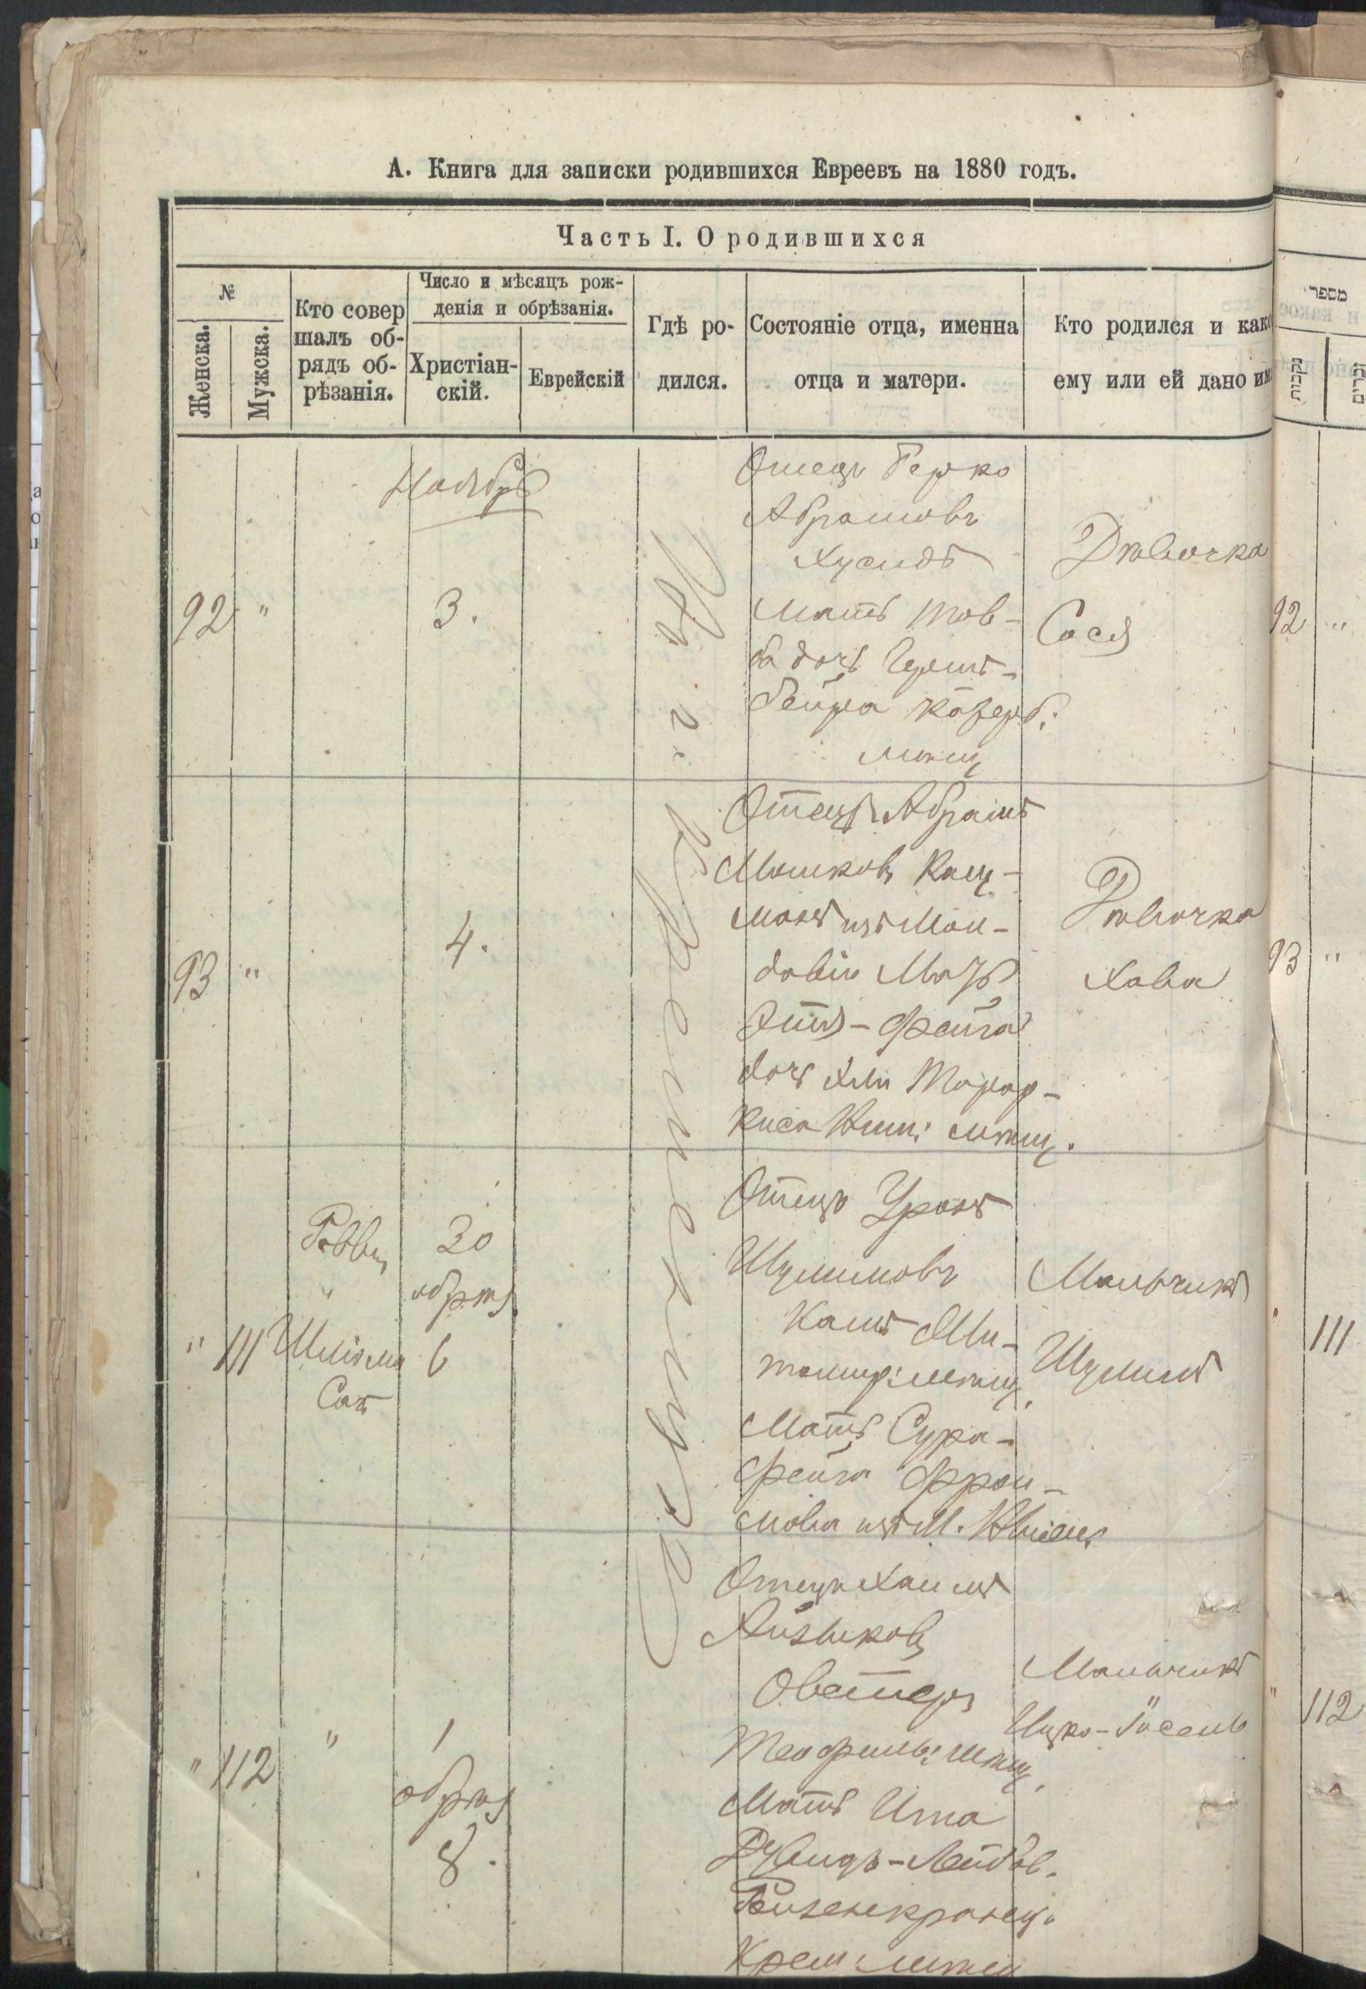 А. Книга для записки родившихся Евреевъ на 1880 годъ.
Часть I. О родившихся
№
Женска.
Мужска.
Кто совер
шалъ об-
рядъ об-
рѣзанія.
Число и мѣсяцъ рож-
денія и обрѣзанія.
Христіан-
скій.
Еврейскій
Гдѣ ро-
дился.
Состояніе отца, именна
отца и матери.
Кто родился и како
ему или ей дано им
מספר
נקבות
זכרים
Ноябрь
92 "
3.
Отецъ Берко
Абрамовъ
Хусидъ
Мать Тов-
ба дочь Герш-
бейра
мѣщ
Дѣвочка
Сося
92 "
93 "
4.
Отецъ Абрамъ
Мошковъ Кац-
манъ изъ Мол-
давіи Мать
Этя-Фейга
дочь
мѣщ.
Дѣвочка
Хава
93 "
" 111
Раввин
"
Шліома
Сат
30
обрѣз.
6
Отецъ
Шулимовъ
мѣщ.
Мать Сура-
Фейга Фрои-
мова изъ М.
Мальчикъ
Шулимъ
" 111
" 112
"
1
обрѣз
8.
Отецъ Хаимъ
Айзиковъ
Теофиль: мѣщ.
Мать Ита
Рувинъ-Лейбов.
Розенкранцъ
Крем: мѣщ
Мальчикъ
Ицко-Іосель
" 112